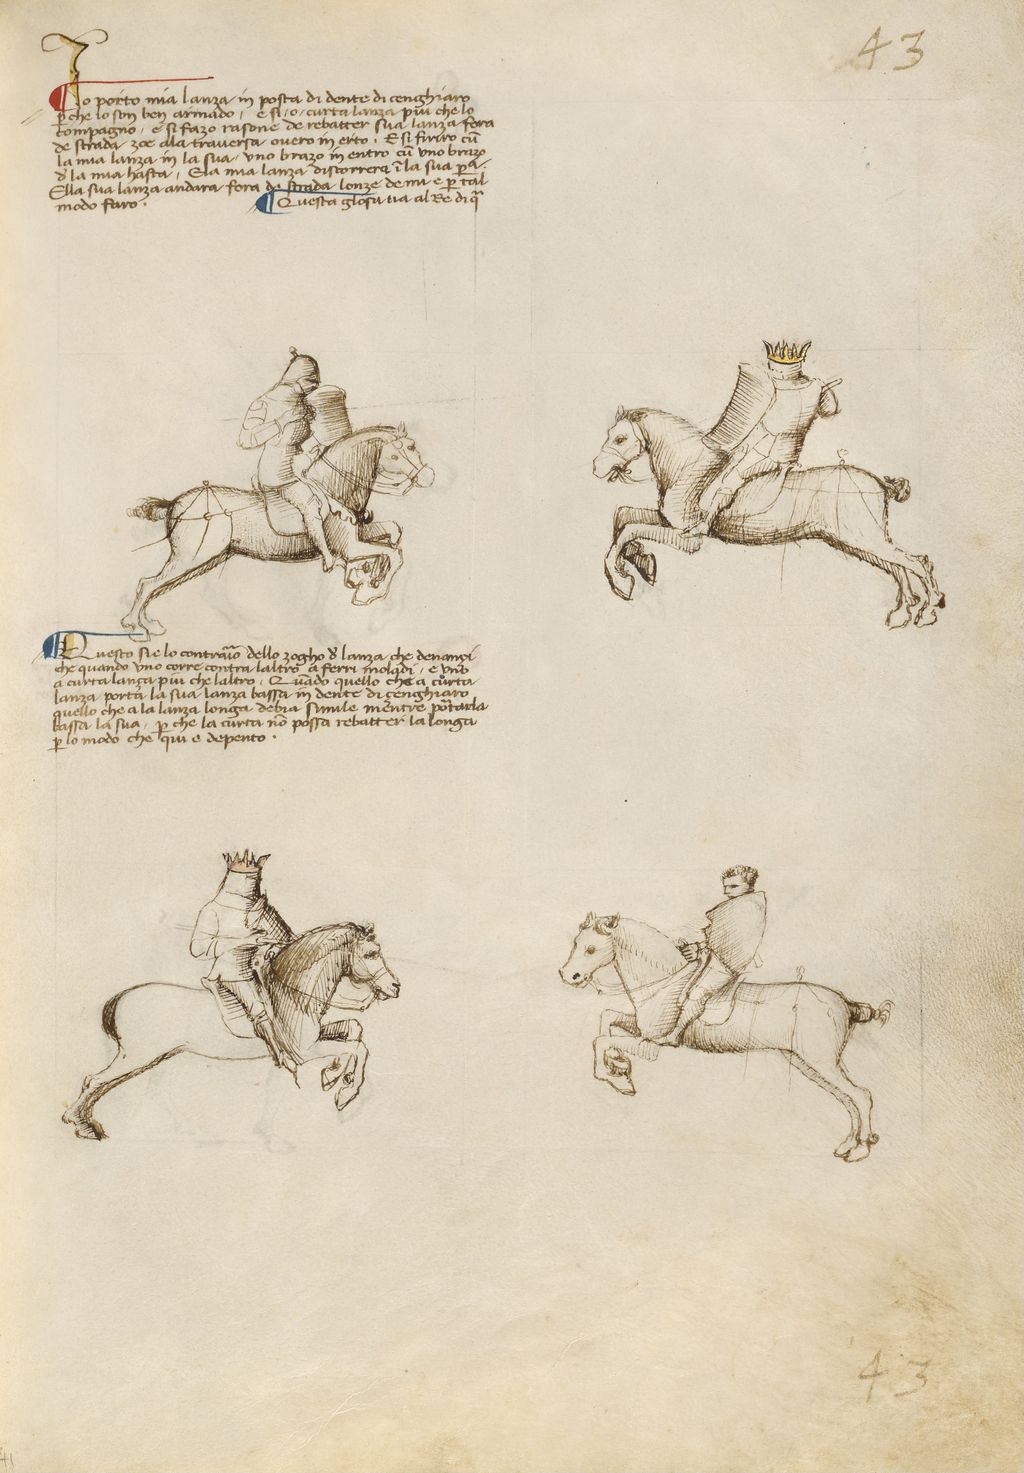 43
Io porto mia lanza in posta di dente di cenghiaro
p che io son ben armado, e si o curta lanza piu che lo
compagno, e si fazo rasone de rebatter sua lanza fora
de strada, zoe ala traversa overo in erto. E si firiro cũ
la mia lanza in la sua, uno brazo in entro cũ uno brazo
d la mia hasta, E la mia lanza discorrera ĩ la sua psa.
Ella sua lanza andara fora de strada lonze de mi e p tal
modo faro.
Questa glosa va al Re di q̃
Questo si e lo contrãio dello zogho d lanza che denançi
che quando uno corre contra laltro a ferri moladi, e uno
a curta lança piu che laltro, Quãdo quello che a curta
lanza porta la sua lanza bassa in dente di cenghiaro
quello che a la lanza longa debia simile mentre portarla
bassa la sua, p che la curta nõ possa rebatter la longa
p lo modo che qui e depento.
43